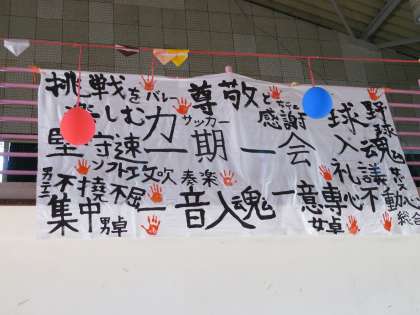 挑戦を バレー 尊敬と 感謝 球 野球
楽しむ力 サッカー 入魂
堅守速 一期一会 礼
不撓不屈 ソフトテニス 吹奏楽 儀
集中 男卓 一音入魂 一意専心 女卓 不動心 総合